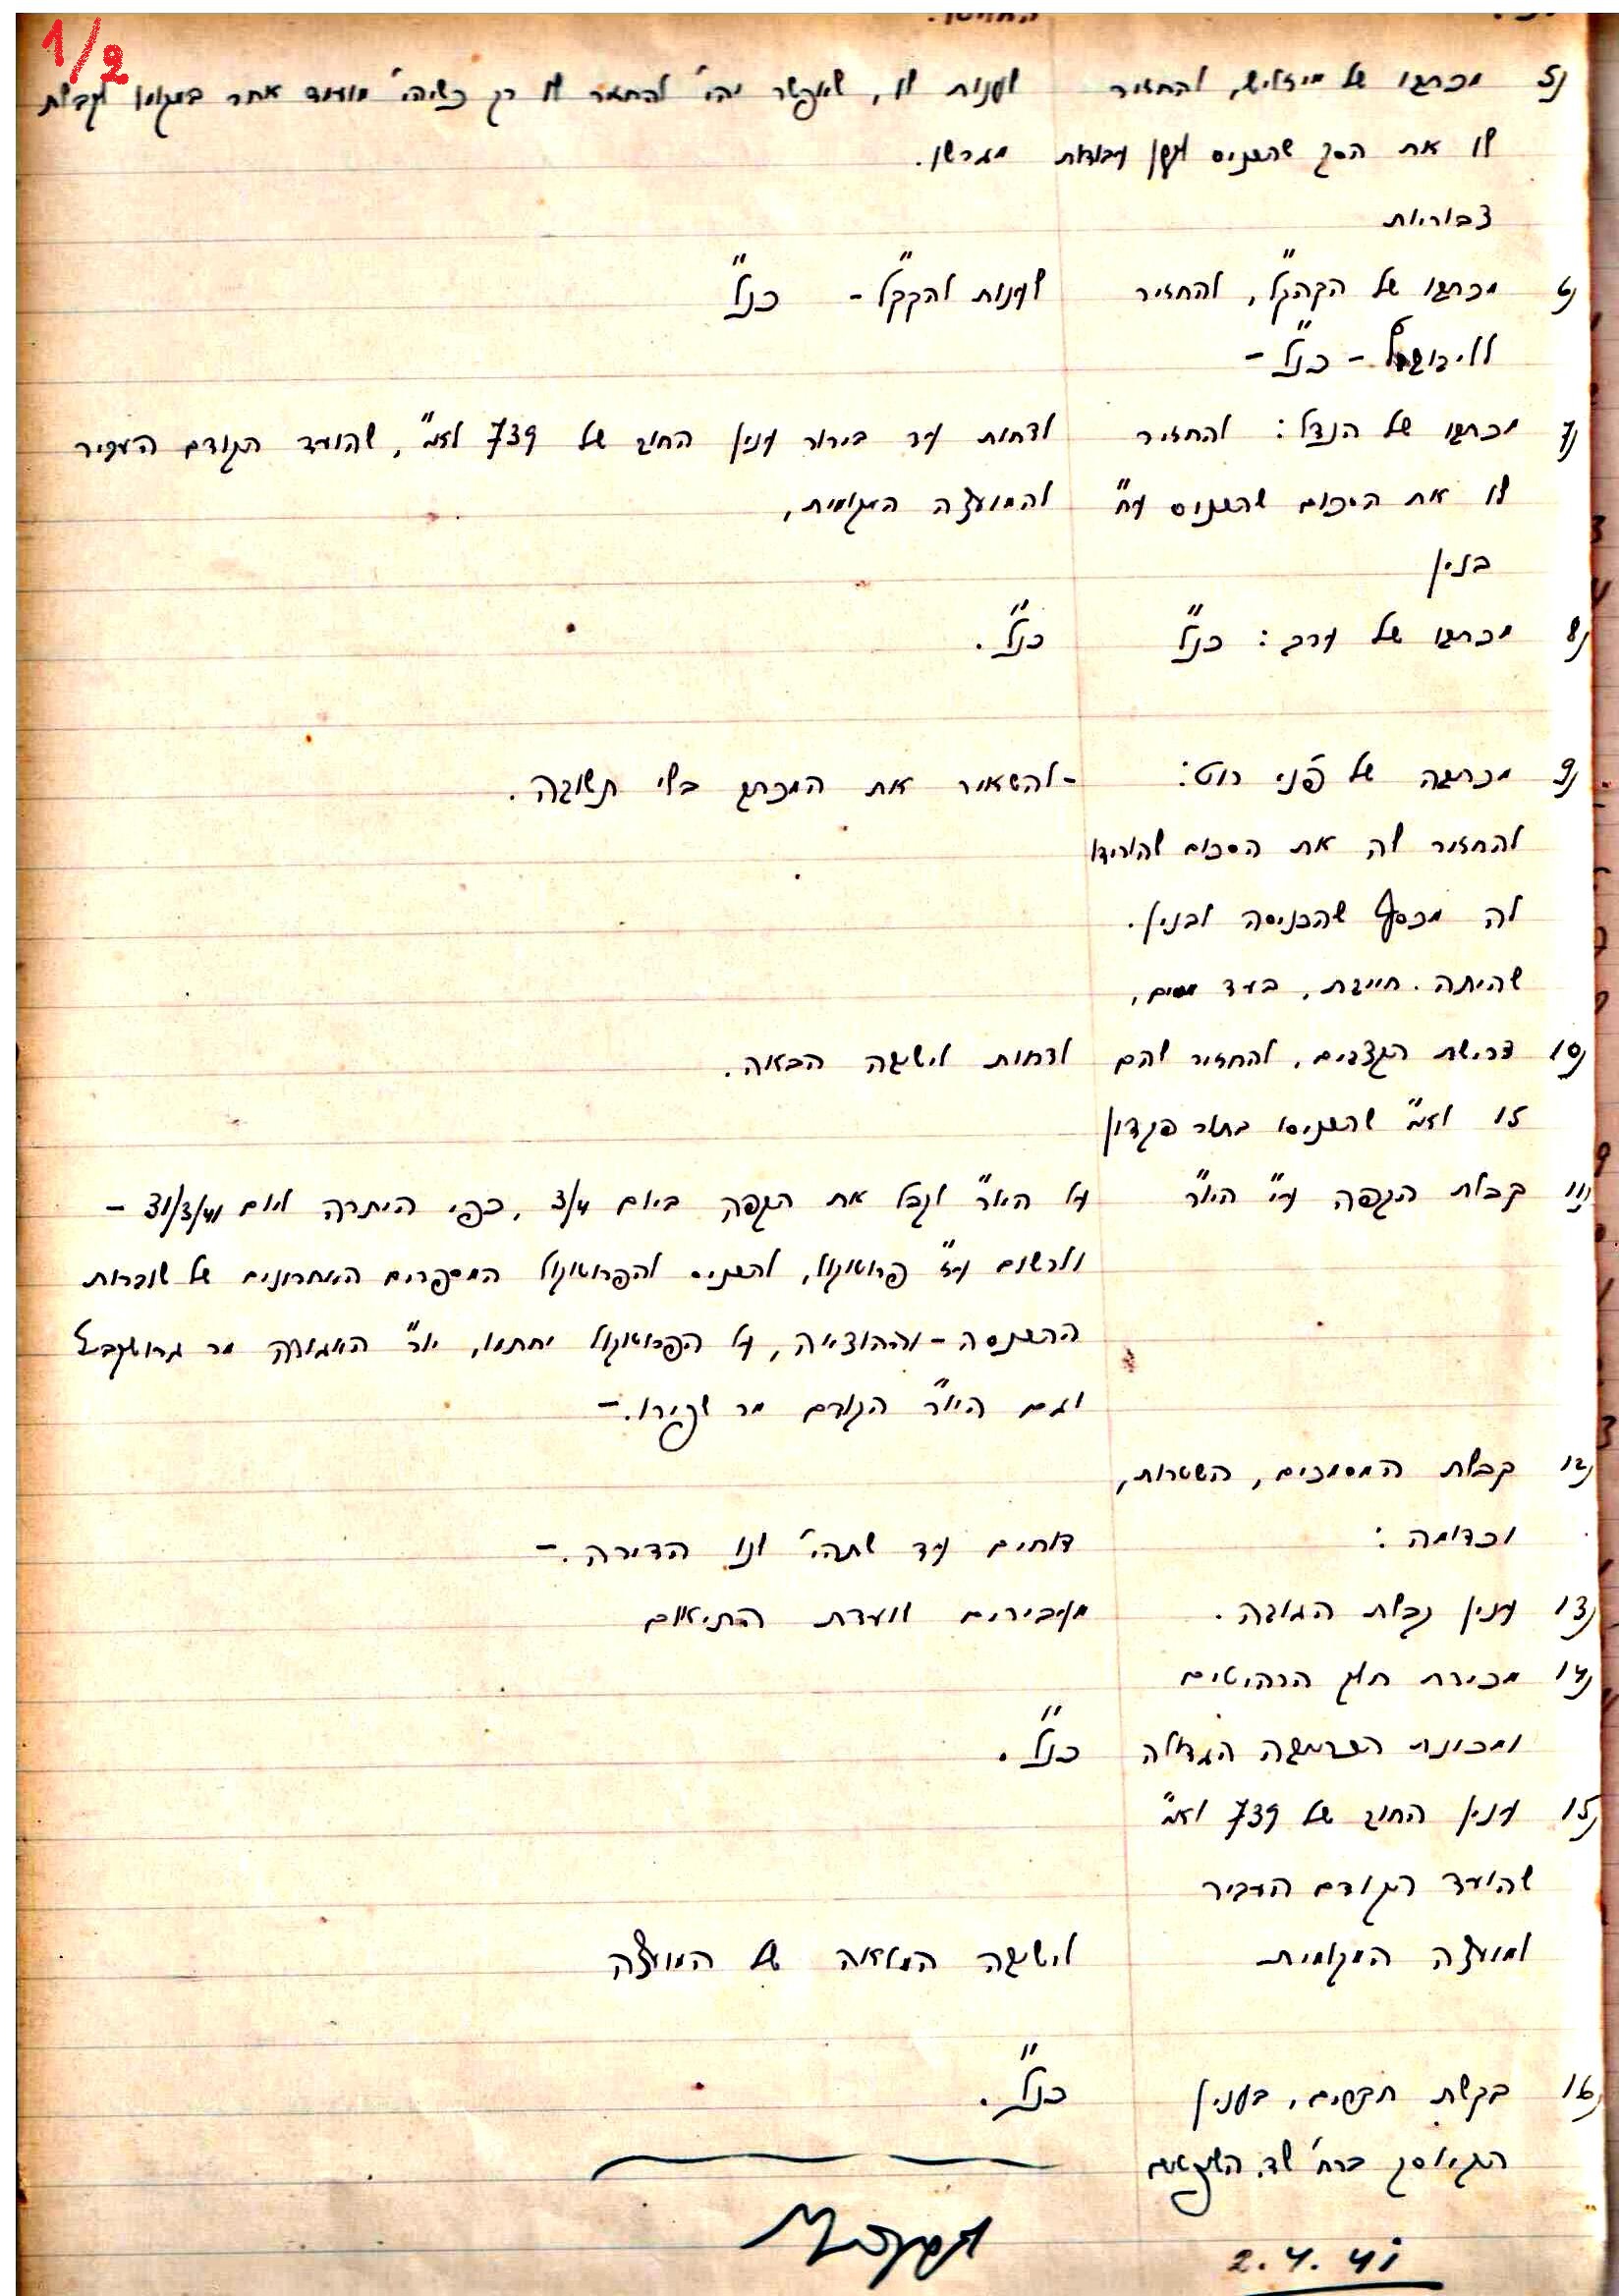 1/2
5) מכתבו של מיזליש, להחזיר לענות לו, שאפשר יהי' להחזיר לו רק כשיהי' מועמד אחר במקומו לקבלת
לו את הסך שהכניס לקרן עבודות מגרשו.
צבוריות
6) מכתבו של הקהק"ל, להחזיר לענות להקק"ל - כנ"ל
כנ"ל -
7) מכתבו של הנדל: להחזיר לדחות עד בירור ענין החוב של 739 לא"י, שהועד הקודם העביר
לו את הסכום שהכניס ע"ח להמועצה המקומית,
בנין
8) מכתבו של ערב: כנ"ל כנ"ל.
9) מכתבה של פני רוט: - להשאיר את המכתב בלי תשובה.
להחזיר לה את הסכום שהורידו
לה מכסף שהכניסה לבנין.
שהיתה חייבת, בעד מסים,
10) דרישת הקצבים, להחזיר להם לדחות לישיבה הבאה.
15 לא"י שהכניסו בתור פקדון
11) קבלת הקפה ע"י היו"ר על היו"ר לקבל את הקפה ביום 3/4, כפי היתרה ליום 31/3/41 -
ולרשום ע"ז פרוטוקול, להכניס להפרוטוקול המספרים האחרונים של שוברות
ההכנסה - וההוצאה, על הפרוטוקול יחתמו, יו"ר האגודה מר
וגם היו"ר הקודם מר שפירו. -
12) קבלת המסמכים, השטרות,
וכדומה: דוחים עד שתהי' לנו הדירה. -
13) ענין קבלת הגובה. מעבירים לועדת התיאום
14) מכירת חלק הרהיטים
ומכונת הכתיבה הגדולה כנ"ל.
15) ענין החוב של 739 לא"י
שהועד הקודם העביר
למועצה המקומית לישיבה המלאה של המועצה
16) בקשת בענין כנ"ל.
הקיוסק ברח' שד.
2.4.41